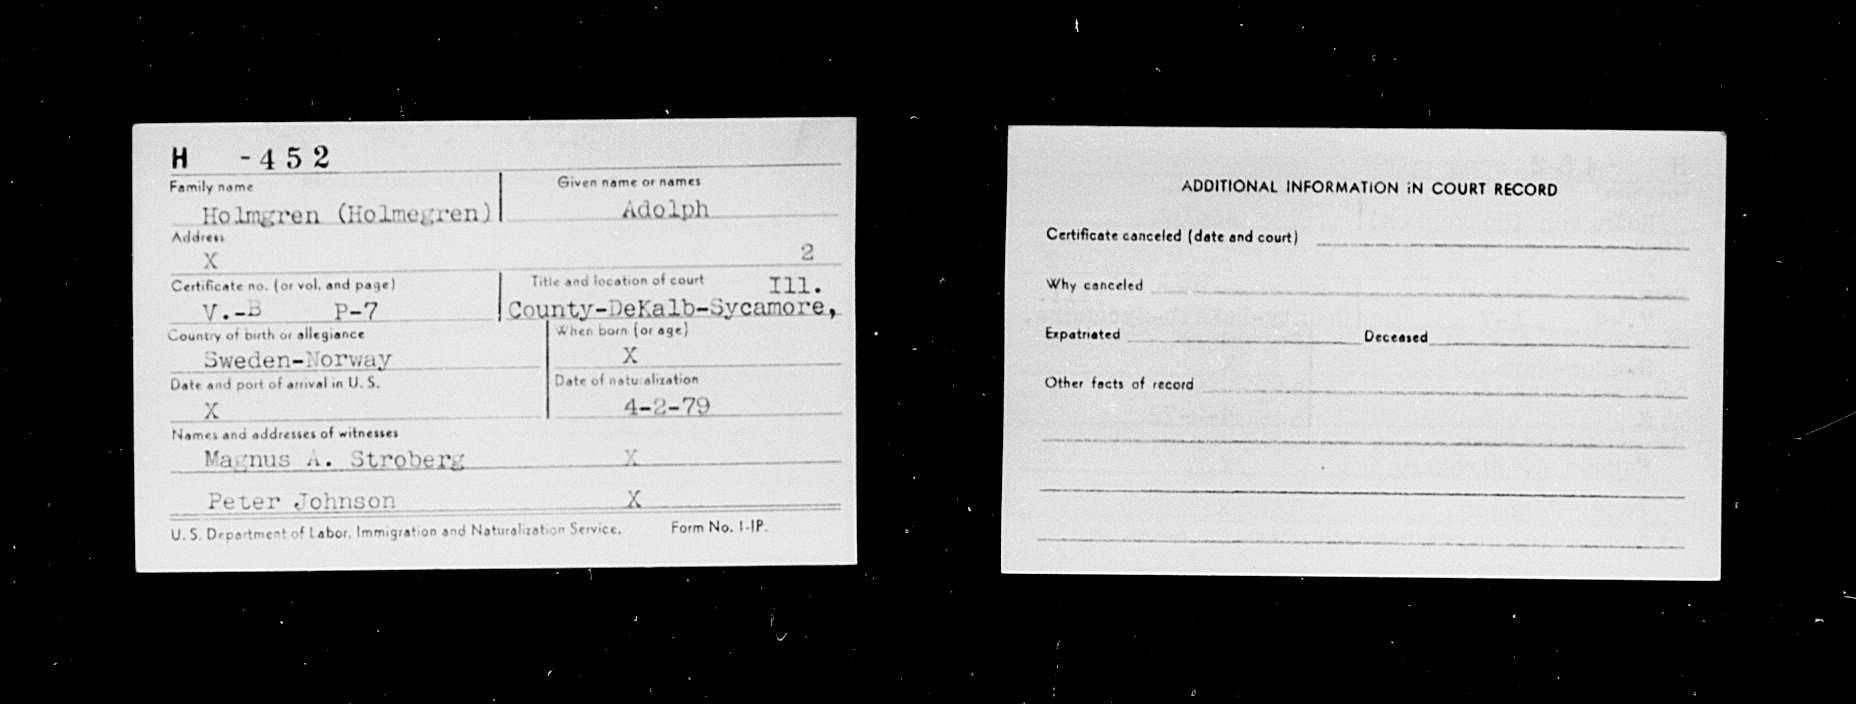 H -452
Family name Given name or names
Holmgren (Holmegren) Adolph
Address
X 2
Certificate no. (or vol. and page) Title and location of court Ill.
V.-B P-7 County-DeKalb-Sycamore,
Country of birth or allegiance When born (or age)
Sweden-Norway X
Date and port of arrival in U. S. Date of naturalization
X 4-2-79
Names and addresses of witnesses
Magnus A. Stroberg X
Peter Johnson X
U. S. Department of Labor, Immigration and Naturalization Service. Form No. 1-IP.
ADDITIONAL INFORMATION IN COURT RECORD
Certificate canceled (date and court)
Why canceled
Expatriated Deceased
Other facts of record